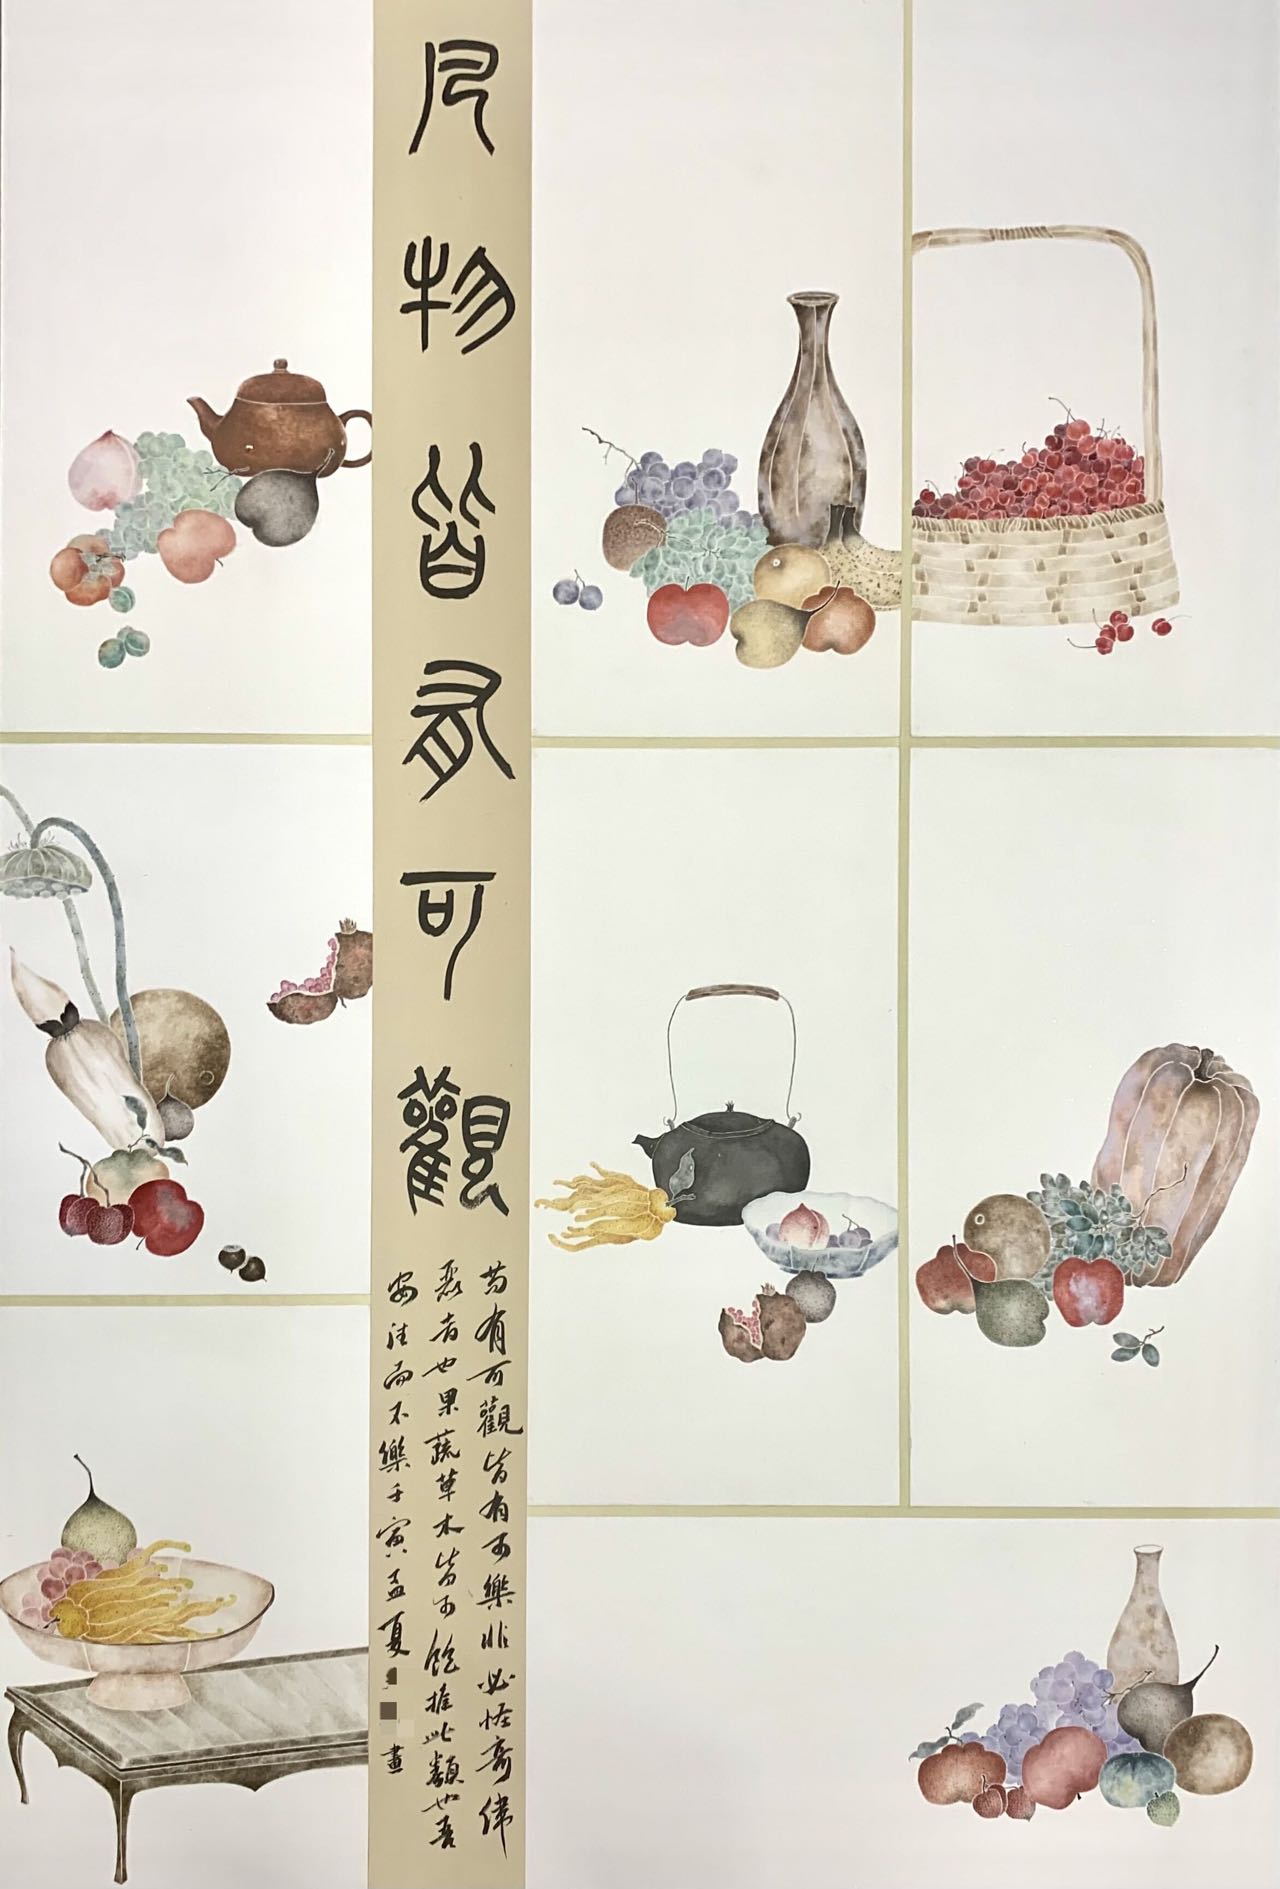 凡物皆有可觀
苟有可觀皆有可樂非必怪奇偉
麗者也果蔬草木皆可飽推此類也吾
安往而不樂壬寅孟夏畫